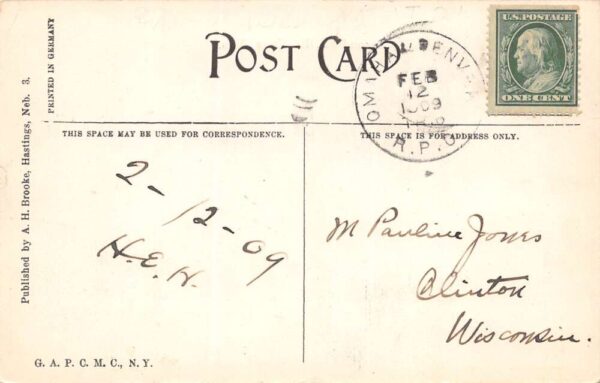 POST CARD
U.S. POSTAGE
ONE CENT
OMAHA & DENVER
FEB
12
1909
R.P.O.
PRINTED IN GERMANY
Published by A. H. Brooke, Hastings, Neb. 3.
THIS SPACE MAY BE USED FOR CORRESPONDENCE.
THIS SPACE IS FOR ADDRESS ONLY.
2-12-09
H.E.H.
M Pauline Jones
Clinton
Wisconsin.
G. A. P. C. M. C., N. Y.